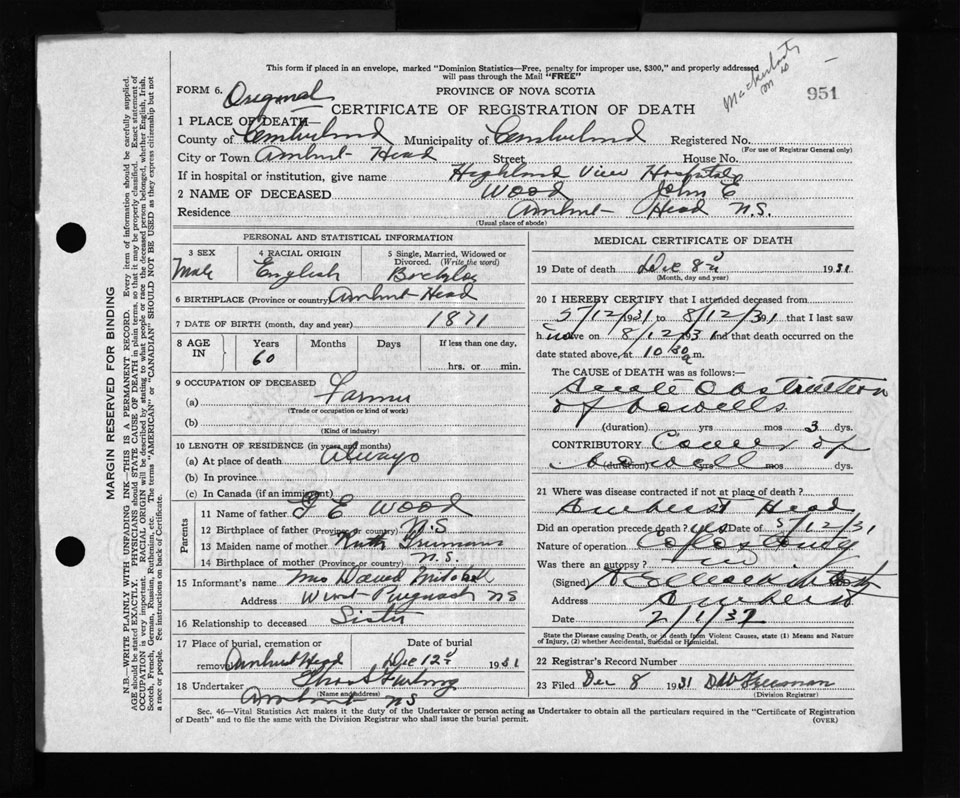 This form if placed in an envelope, marked "Dominion Statistics—Free, penalty for improper use, $300," and properly addressed
will pass through the Mail "FREE"
951
FORM 6. Original
PROVINCE OF NOVA SCOTIA
CERTIFICATE OF REGISTRATION OF DEATH
1 PLACE OF DEATH—
County of Cumberland Municipality of Cumberland Registered No.
(For use of Registrar General only)
City or Town Amherst Head Street House No.
If in hospital or institution, give name Highland View Hospital
2 NAME OF DECEASED Wood John E
Residence Amherst Head N.S.
(Usual place of abode)
PERSONAL AND STATISTICAL INFORMATION
3 SEX 4 RACIAL ORIGIN 5 Single, Married, Widowed or Divorced. (Write the word)
Male English
6 BIRTHPLACE (Province or country) Amherst Head
7 DATE OF BIRTH (month, day and year) 1871
8 AGE IN Years Months Days If less than one day,
60 hrs. or min.
9 OCCUPATION OF DECEASED
(a) Farmer
(Trade or occupation or kind of work)
(b)
(Kind of industry)
10 LENGTH OF RESIDENCE (in years and months)
(a) At place of death Always
(b) In province
(c) In Canada (if an immigrant)
Parents
11 Name of father E Wood
12 Birthplace of father (Province or country) N.S
13 Maiden name of mother Ruth
14 Birthplace of mother (Province or country) N.S.
15 Informant's name Mrs David
Address West Pugwash NS
16 Relationship to deceased Sister
17 Place of burial, cremation or removal Amherst Head
Date of burial Dec 12 1931
18 Undertaker
(Name and address)
Amherst NS
MEDICAL CERTIFICATE OF DEATH
19 Date of death Dec 8 1931
(Month, day and year)
20 I HEREBY CERTIFY that I attended deceased from
5/12/31 to 8/12/31 that I last saw
h alive on 8/12/31 and that death occurred on the
date stated above, at 10 30 a m.
The CAUSE of DEATH was as follows:—
Acute Obstruction
of bowells
(duration) yrs mos 3 dys.
CONTRIBUTORY Cancer of
bowell
(duration) yrs mos dys.
21 Where was disease contracted if not at place of death?
Amherst Head
Did an operation precede death? yes Date of 5/12/31
Nature of operation
Was there an autopsy? no
(Signed)
Address Amherst
Date 2/1/32
State the Disease causing Death, or in death from Violent Causes, state (1) Means and Nature
of Injury, (2) whether Accidental, Suicidal or Homicidal.
22 Registrar's Record Number
23 Filed Dec 8 1931 Freeman
(Division Registrar)
Sec. 46—Vital Statistics Act makes it the duty of the Undertaker or person acting as Undertaker to obtain all the particulars required in the "Certificate of Registration
of Death" and to file the same with the Division Registrar who shall issue the burial permit.
(OVER)
MARGIN RESERVED FOR BINDING
N.B.—WRITE PLAINLY WITH UNFADING INK—THIS IS A PERMANENT RECORD. Every item of information should be carefully supplied.
AGE should be stated EXACTLY. PHYSICIANS should STATE CAUSE OF DEATH in plain terms, so that it may be properly classified. Exact statement of
OCCUPATION is very important. RACIAL ORIGIN will be described by stating to what people or race the deceased person belonged, whether English, Irish,
Scotch, French, German, Russian, Ruthenian, etc. The terms "AMERICAN" or "CANADIAN" SHOULD NOT BE USED as they express citizenship but not
a race or people. See instructions on back of Certificate.